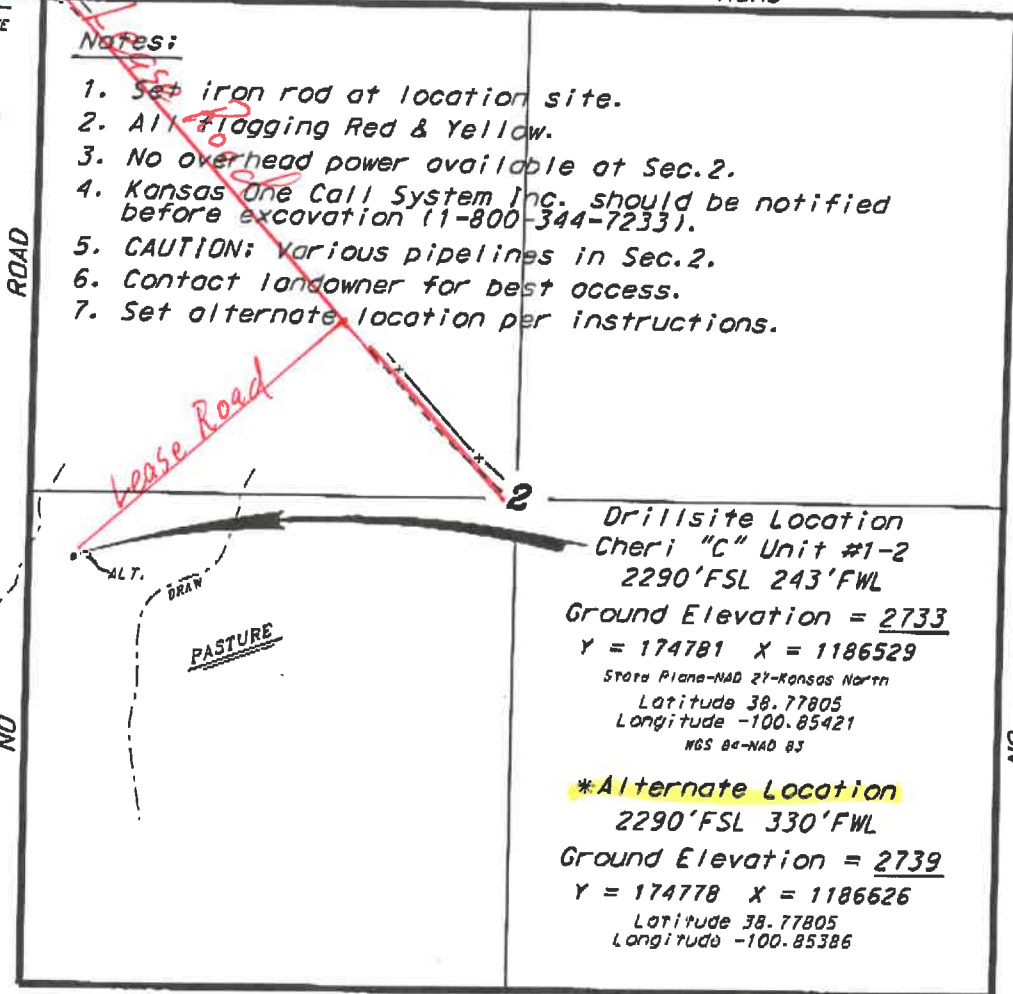 ROAD
Notes:
Lease Road
1. Set iron rod at location site.
2. All flagging Red & Yellow.
3. No overhead power available at Sec.2.
4. Kansas One Call System Inc. should be notified
before excavation (1-800-344-7233).
5. CAUTION: Various pipelines in Sec.2.
6. Contact landowner for best access.
7. Set alternate location per instructions.
ROAD
Lease Road
2
ALT.
DRAW
PASTURE
NO
Drillsite Location
Cheri "C" Unit #1-2
2290'FSL 243'FWL
Ground Elevation = 2733
Y = 174781 X = 1186529
State Plane-NAD 27-Kansas North
Latitude 38.77805
Longitude -100.85421
WGS 84-NAD 83
*Alternate Location
2290'FSL 330'FWL
Ground Elevation = 2739
Y = 174778 X = 1186626
Latitude 38.77805
Longitude -100.85386